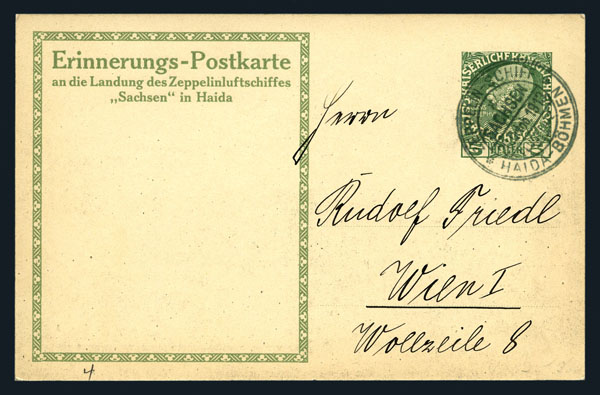 Erinnerungs-Postkarte
an die Landung des Zeppelinluftschiffes
„Sachsen“ in Haida
SCHIFF
* HAIDA BÖHMEN
Herrn
Rudolf Friedl
Wien I
Wollzeile 8
4